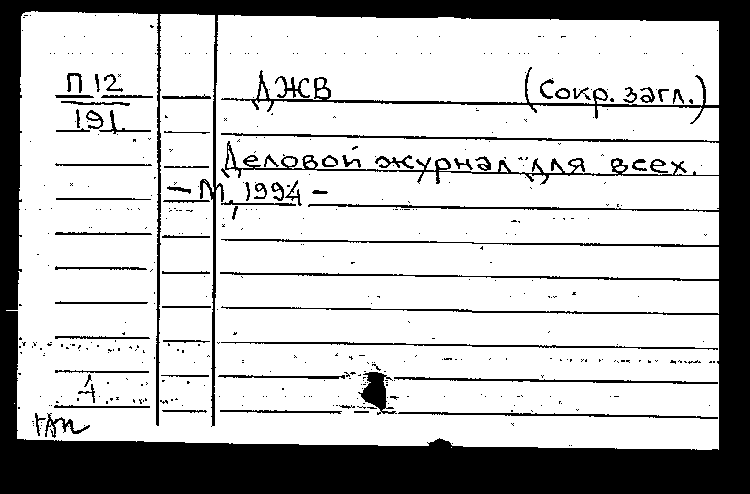 П 12 ДЖВ (Сокр. загл.)
191
Деловой журнал для всех.
— М., 1994 –
4